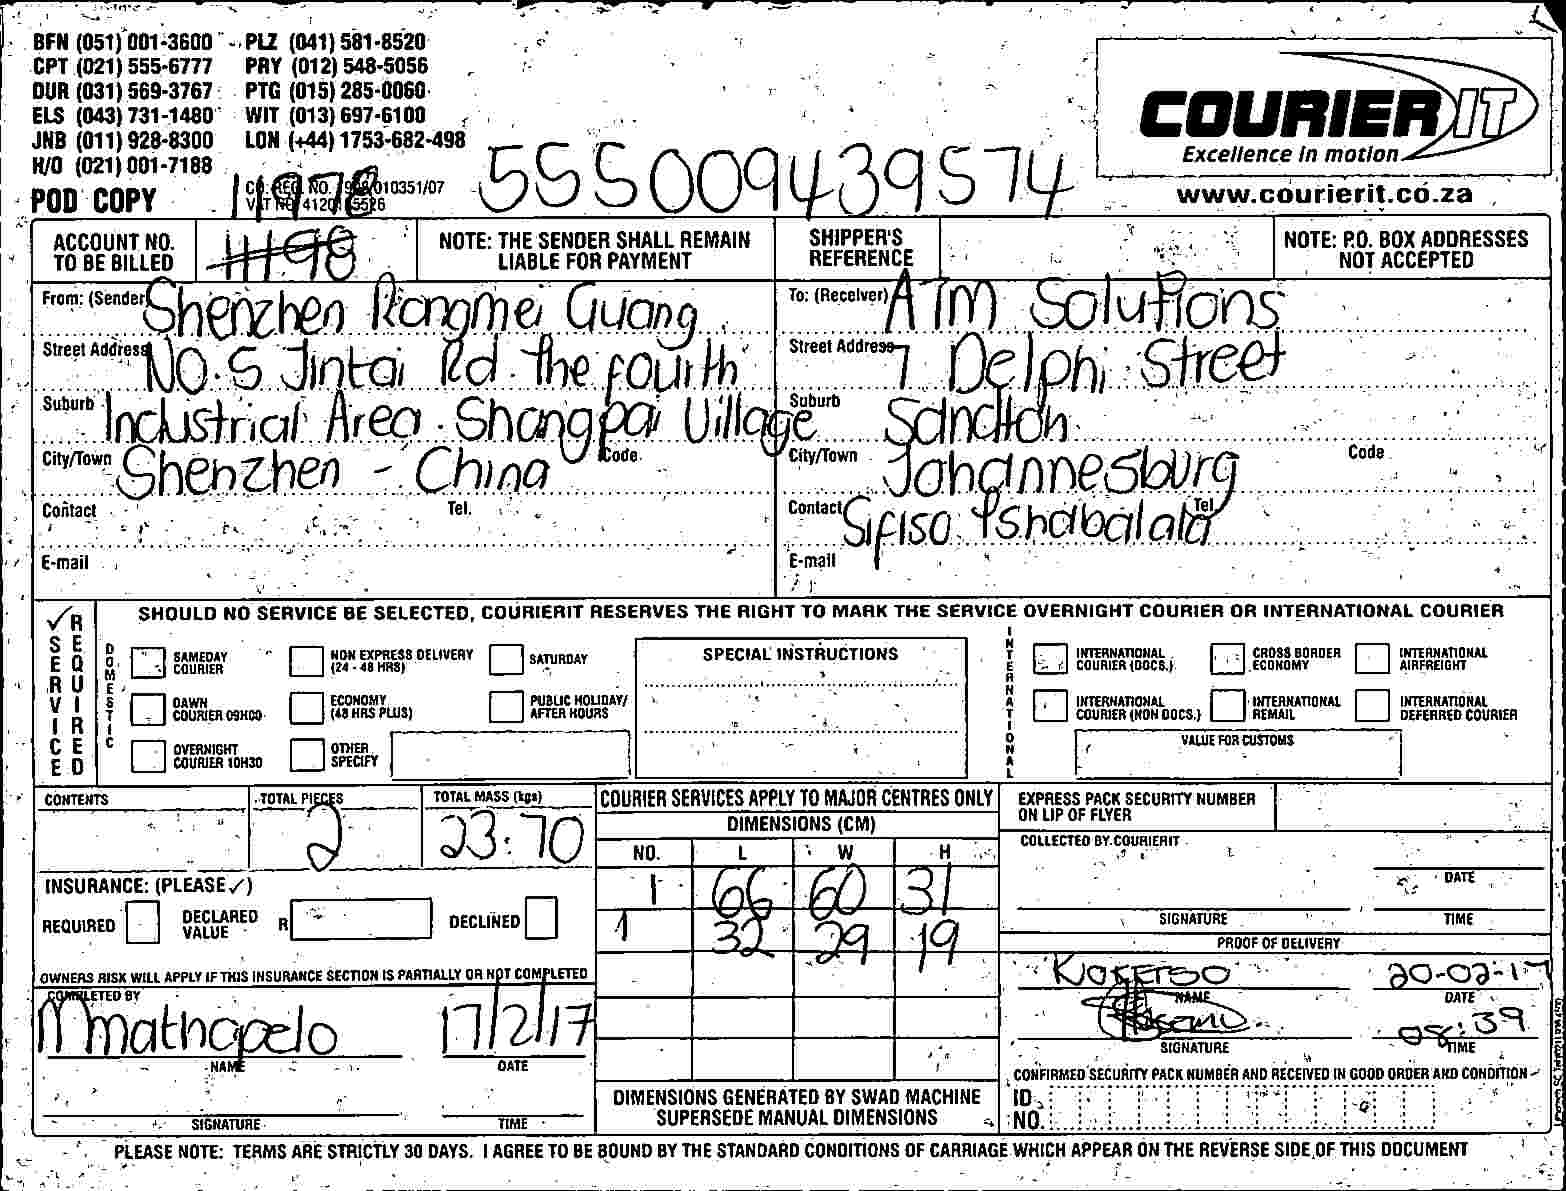 BFN (051) 001-3600 PLZ (041) 581-8520
CPT (021) 555-6777 PRY (012) 548-5056
DUR (031) 569-3767 PTG (015) 285-0060
ELS (043) 731-1480 WIT (013) 697-6100
JNB (011) 928-8300 LON (+44) 1753-682-498
H/O (021) 001-7188
COURIER IT
Excellence in motion
www.courierit.co.za
POD COPY
11978
555009439574
ACCOUNT NO. TO BE BILLED 11198
NOTE: THE SENDER SHALL REMAIN LIABLE FOR PAYMENT
SHIPPER'S REFERENCE
NOTE: P.O. BOX ADDRESSES NOT ACCEPTED
From: (Sender) Shenzhen Rongmei Guang
Street Address NO.5 Jintai Rd. The fourth
Suburb Industrial Area. Shangpai Village
City/Town Shenzhen - China Code
Contact Tel.
E-mail
To: (Receiver) ATM Solutions
Street Address 7 Delphi Street
Suburb Sandton
City/Town Johannesburg Code
Contact Sifiso Tshabalala Tel.
E-mail
SERVICE REQUIRED
SHOULD NO SERVICE BE SELECTED, COURIERIT RESERVES THE RIGHT TO MARK THE SERVICE OVERNIGHT COURIER OR INTERNATIONAL COURIER
DOMESTIC
SAMEDAY COURIER
NON EXPRESS DELIVERY (24 - 48 HRS)
SATURDAY
DAWN COURIER 09H00
ECONOMY (48 HRS PLUS)
PUBLIC HOLIDAY/ AFTER HOURS
OVERNIGHT COURIER 10H30
OTHER SPECIFY
SPECIAL INSTRUCTIONS
INTERNATIONAL
INTERNATIONAL COURIER (DOCS.)
CROSS BORDER ECONOMY
INTERNATIONAL AIRFREIGHT
INTERNATIONAL COURIER (NON DOCS.)
INTERNATIONAL REMAIL
INTERNATIONAL DEFERRED COURIER
VALUE FOR CUSTOMS
CONTENTS
TOTAL PIECES 2
TOTAL MASS (kgs) 23.70
INSURANCE: (PLEASE ✓)
REQUIRED
DECLARED VALUE R
DECLINED
OWNERS RISK WILL APPLY IF THIS INSURANCE SECTION IS PARTIALLY OR NOT COMPLETED
COMPLETED BY
Mmathapelo 17/2/17
NAME DATE
SIGNATURE TIME
COURIER SERVICES APPLY TO MAJOR CENTRES ONLY
DIMENSIONS (CM)
NO. L W H
1 66 60 31
1 32 29 19
DIMENSIONS GENERATED BY SWAD MACHINE
SUPERSEDE MANUAL DIMENSIONS
EXPRESS PACK SECURITY NUMBER ON LIP OF FLYER
COLLECTED BY COURIERIT
DATE
SIGNATURE TIME
PROOF OF DELIVERY
20-02-17
NAME DATE
08:39
SIGNATURE TIME
CONFIRMED SECURITY PACK NUMBER AND RECEIVED IN GOOD ORDER AND CONDITION
ID NO.
PLEASE NOTE: TERMS ARE STRICTLY 30 DAYS. I AGREE TO BE BOUND BY THE STANDARD CONDITIONS OF CARRIAGE WHICH APPEAR ON THE REVERSE SIDE OF THIS DOCUMENT